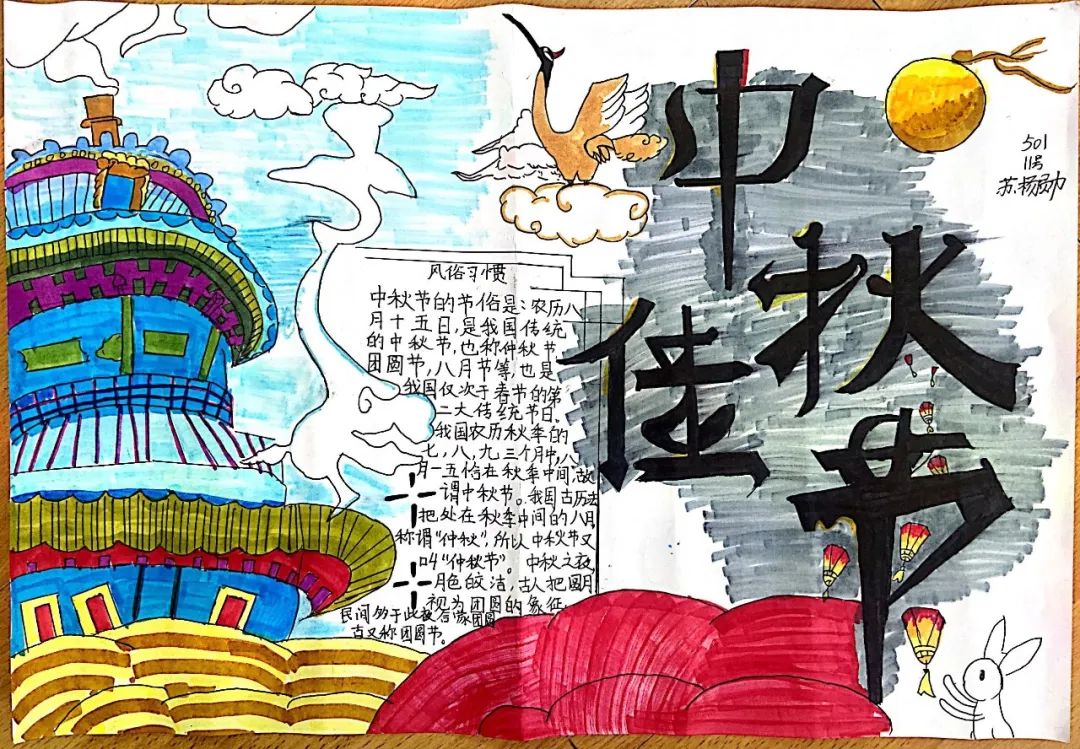 中秋佳节
501
11号
风俗习惯
中秋节的节俗是:农历八
月十五日,是我国传统
的中秋节,也称仲秋节
团圆节,八月节等,也是
我国仅次于春节的第
二大传统节日。
我国农历秋季的
七,八,九三个月中,八
月一五恰在秋季中间,故
谓中秋节。我国古历法
把处在秋季中间的八月
称谓“仲秋”,所以中秋节又
叫“仲秋节”。中秋之夜,
月色皎洁,古人把圆月
视为团圆的象征,
民间多于此夜合家团圆
古又称团圆节。